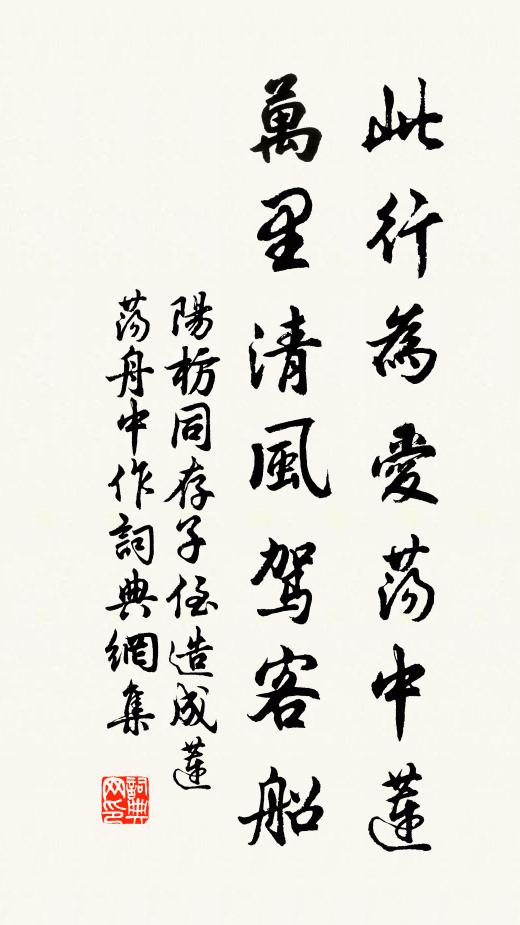 此行為愛蕩中蓮
萬里清風駕客船
陽枋同存子侄造成蓮
蕩舟中作詞典網集
詞典網印